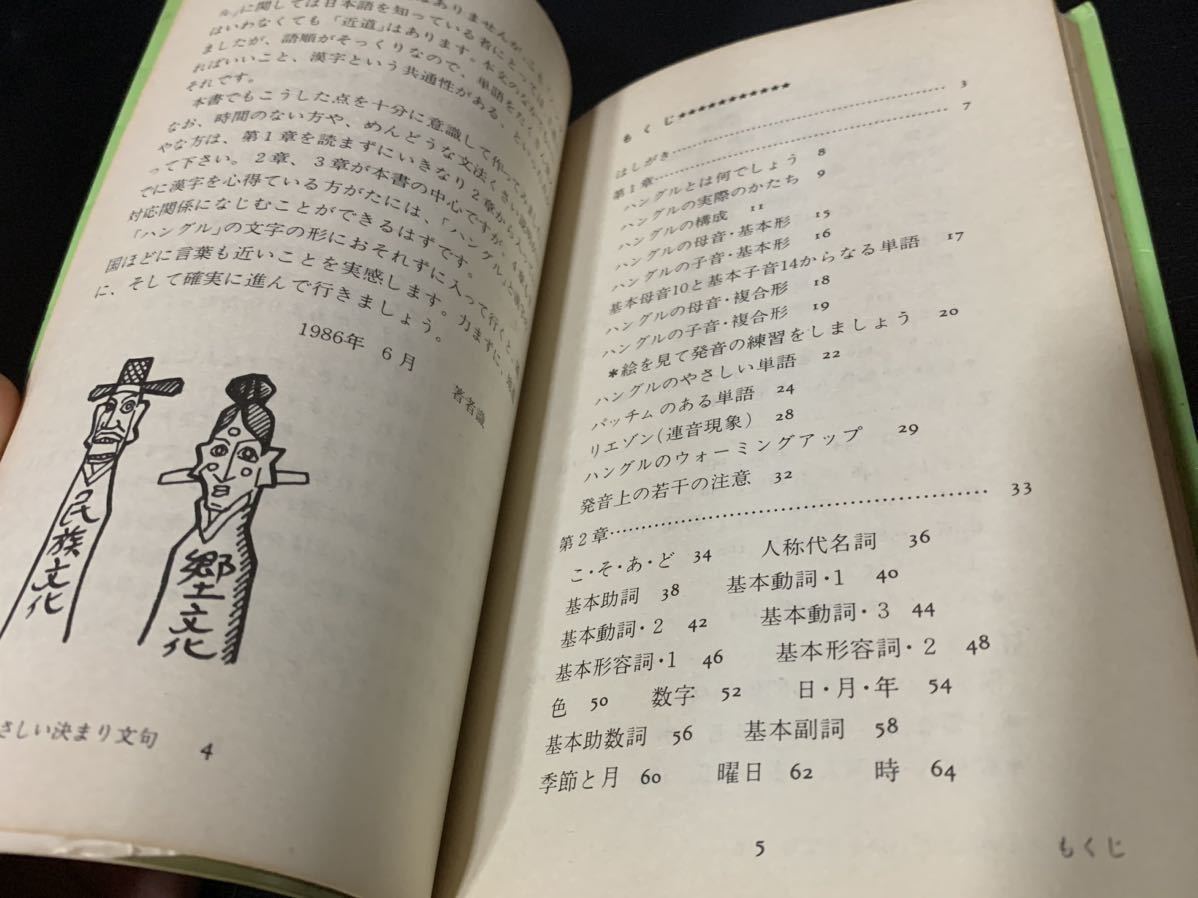 ル」に関しては日本語を知っている者にとっては、
はいわなくても「近道」はあります。本文のなか
ましたが、語順がそっくりなので、単語をたくさん
ればいいこと、漢字という共通性がある、といった
それです。
本書でもこうした点を十分に意識して作ってみました。
なお、時間のない方や、めんどうな文法くさい説明が
やな方は、第1章を読まずにいきなり2章から入
って下さい。2章、3章が本書の中心ですが、4章
でに漢字を心得ている方がたには、「ハングル」と漢字の
対応関係になじむことができるはずです。
「ハングル」の文字の形におそれずに入って行くと、
国ほどに言葉も近いことを実感します。力まずに、
に、そして確実に進んで行きましょう。
1986年 6月
著者識
民族文化
郷土文化
さしい決まり文句 4
もくじ***********
はしがき 3
第1章 7
ハングルとは何でしょう 8
ハングルの実際のかたち 9
ハングルの構成 11
ハングルの母音・基本形 15
ハングルの子音・基本形 16
基本母音10と基本子音14からなる単語 17
ハングルの母音・複合形 18
ハングルの子音・複合形 19
*絵を見て発音の練習をしましょう 20
ハングルのやさしい単語 22
パッチムのある単語 24
リエゾン(連音現象) 28
ハングルのウォーミングアップ 29
発音上の若干の注意 32
第2章 33
こ・そ・あ・ど 34 人称代名詞 36
基本助詞 38 基本動詞・1 40
基本動詞・2 42 基本動詞・3 44
基本形容詞・1 46 基本形容詞・2 48
色 50 数字 52 日・月・年 54
基本助数詞 56 基本副詞 58
季節と月 60 曜日 62 時 64
5 もくじ